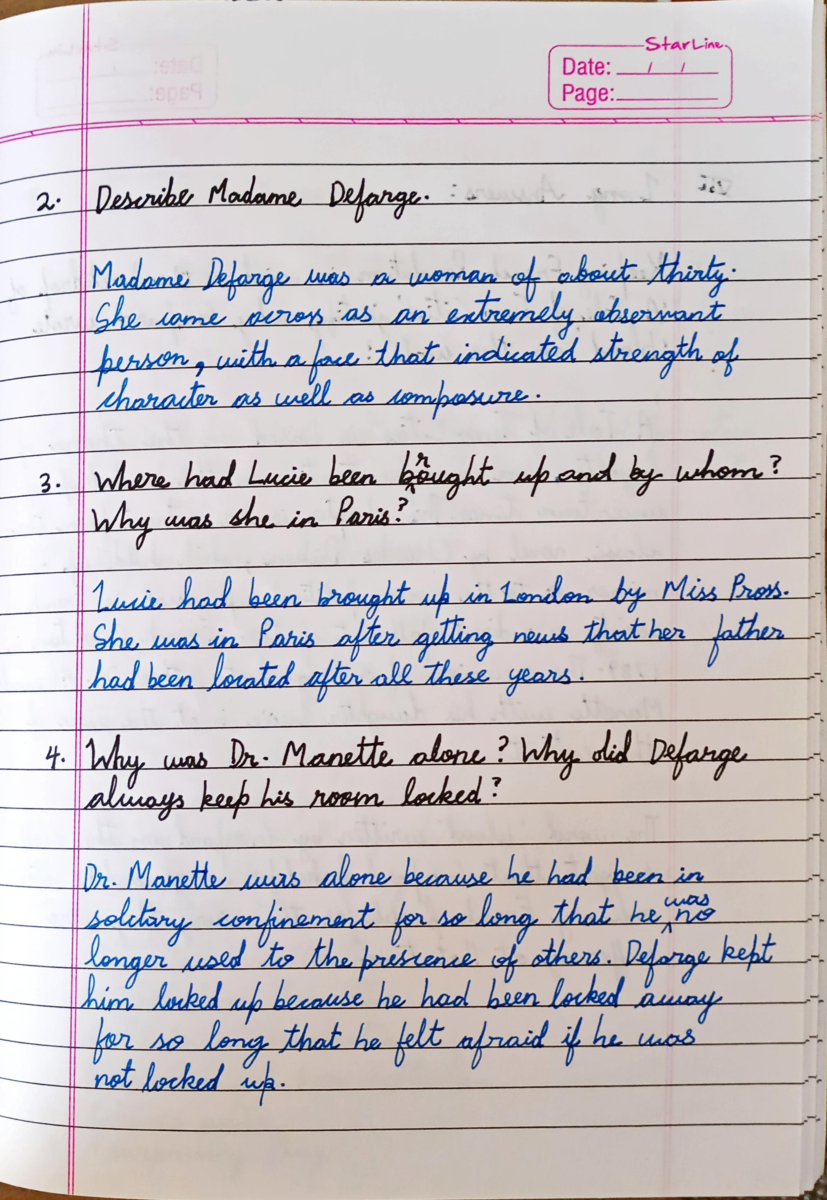 StarLine
Date: / /
Page:
2. Describe Madame Defarge.
Madame Defarge was a woman of about thirty.
She came across as an extremely observant
person, with a face that indicated strength of
character as well as composure.
3. Where had Lucie been brought up and by whom?
Why was she in Paris?
Lucie had been brought up in London by Miss Pross.
She was in Paris after getting news that her father
had been located after all these years.
4. Why was Dr. Manette alone? Why did Defarge
always keep his room locked?
Dr. Manette was alone because he had been in
solctary confinement for so long that he was no
longer used to the prescence of others. Defarge kept
him locked up because he had been locked away
for so long that he felt afraid if he was
not locked up.